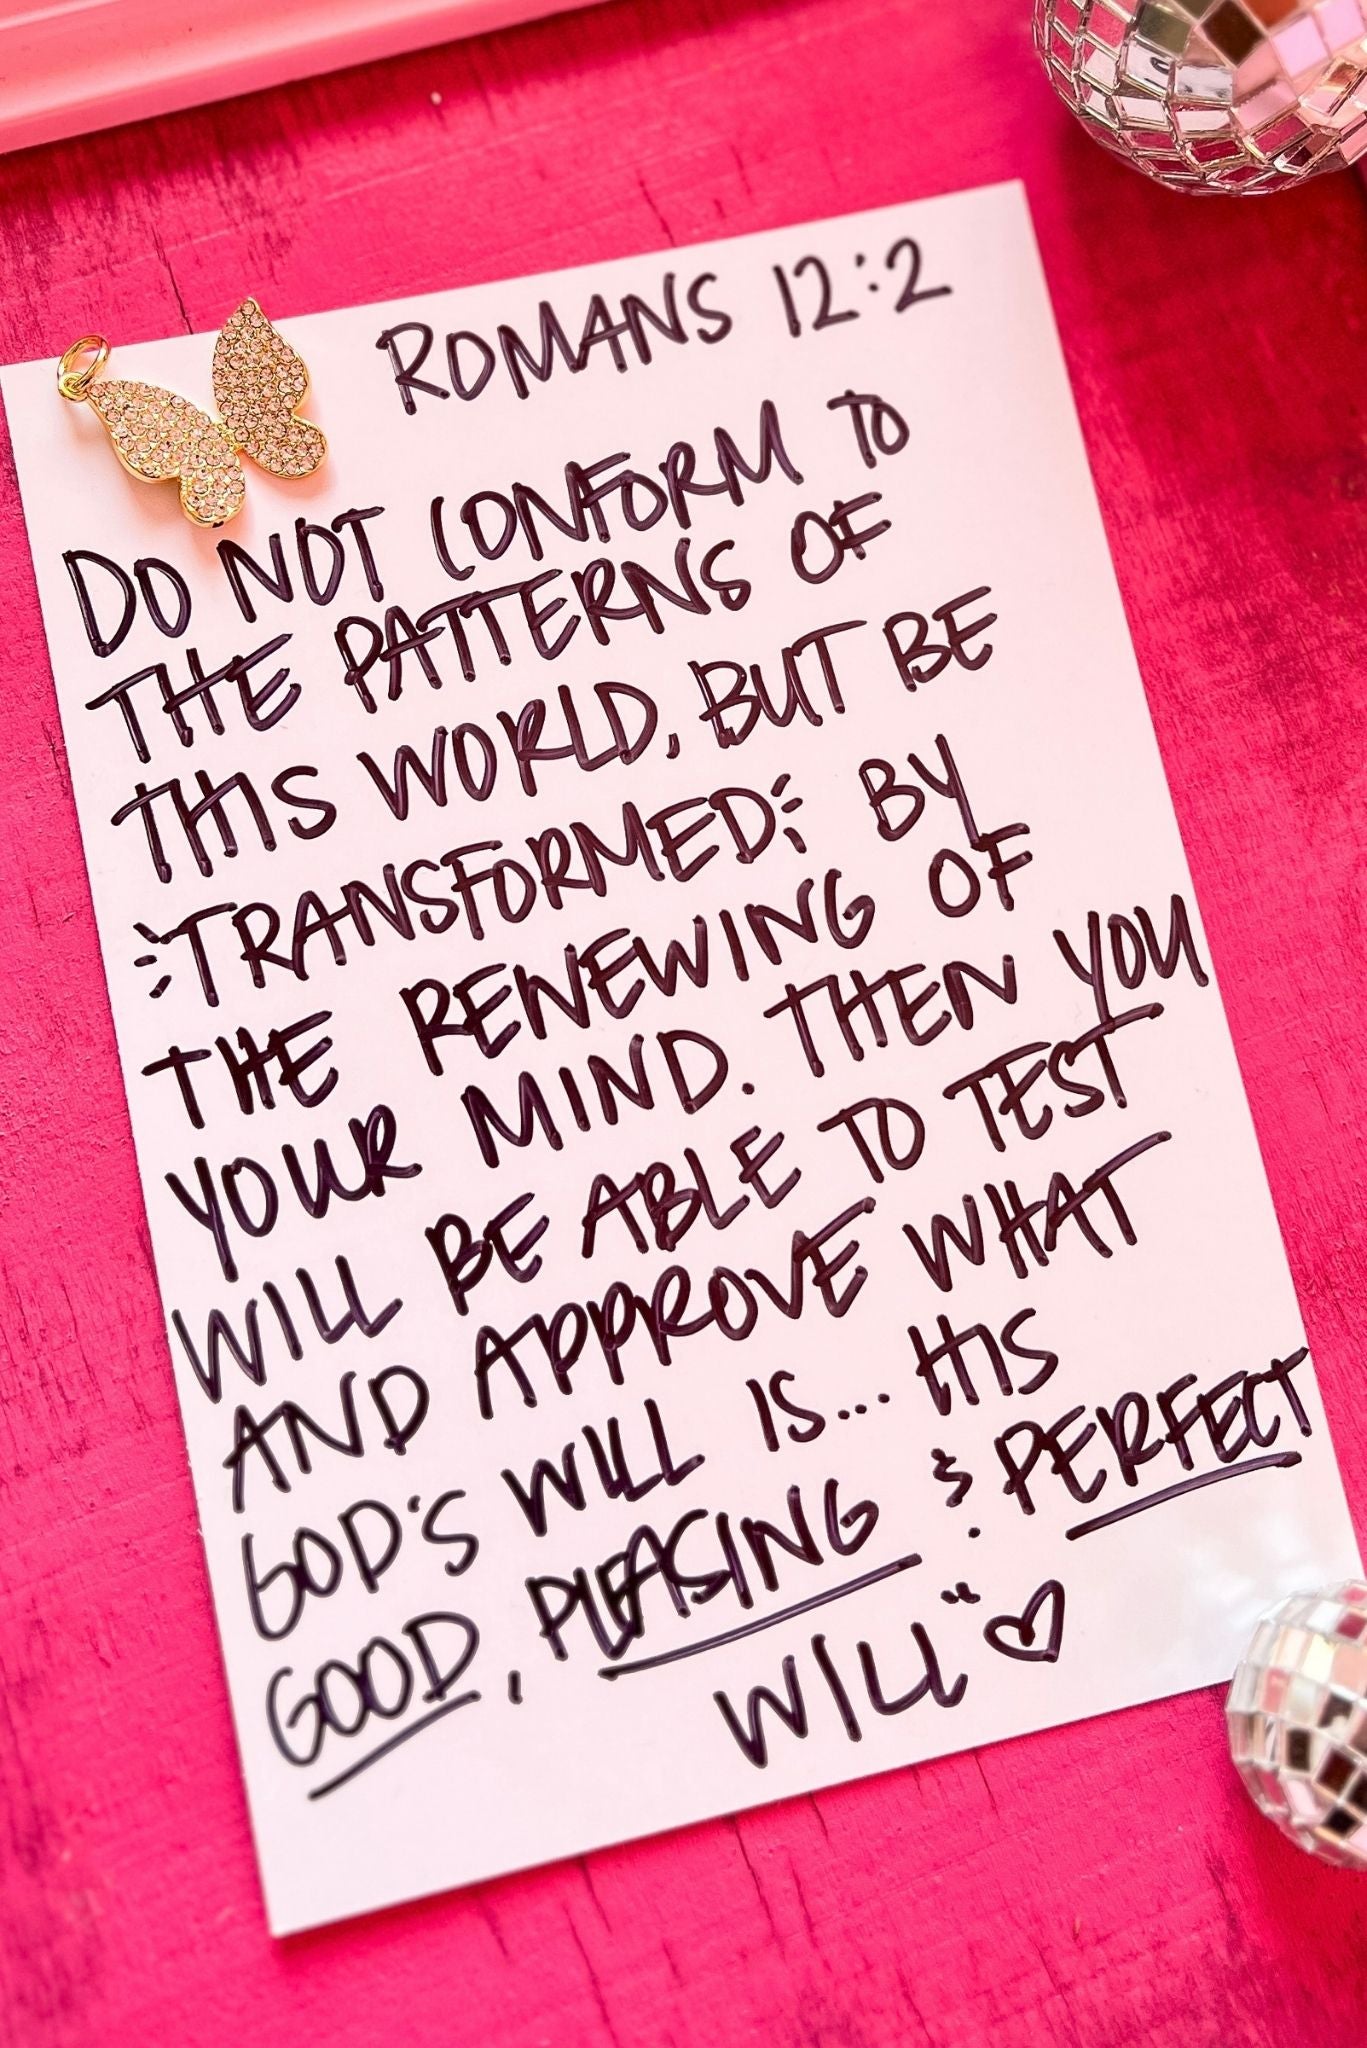 ROMANS 12:2
DO NOT CONFORM TO
THE PATTERNS OF
THIS WORLD, BUT BE
TRANSFORMED BY
THE RENEWING OF
YOUR MIND. THEN YOU
WILL BE ABLE TO TEST
AND APPROVE WHAT
GOD'S WILL IS... HIS
GOOD, PLEASING & PERFECT
WILL"